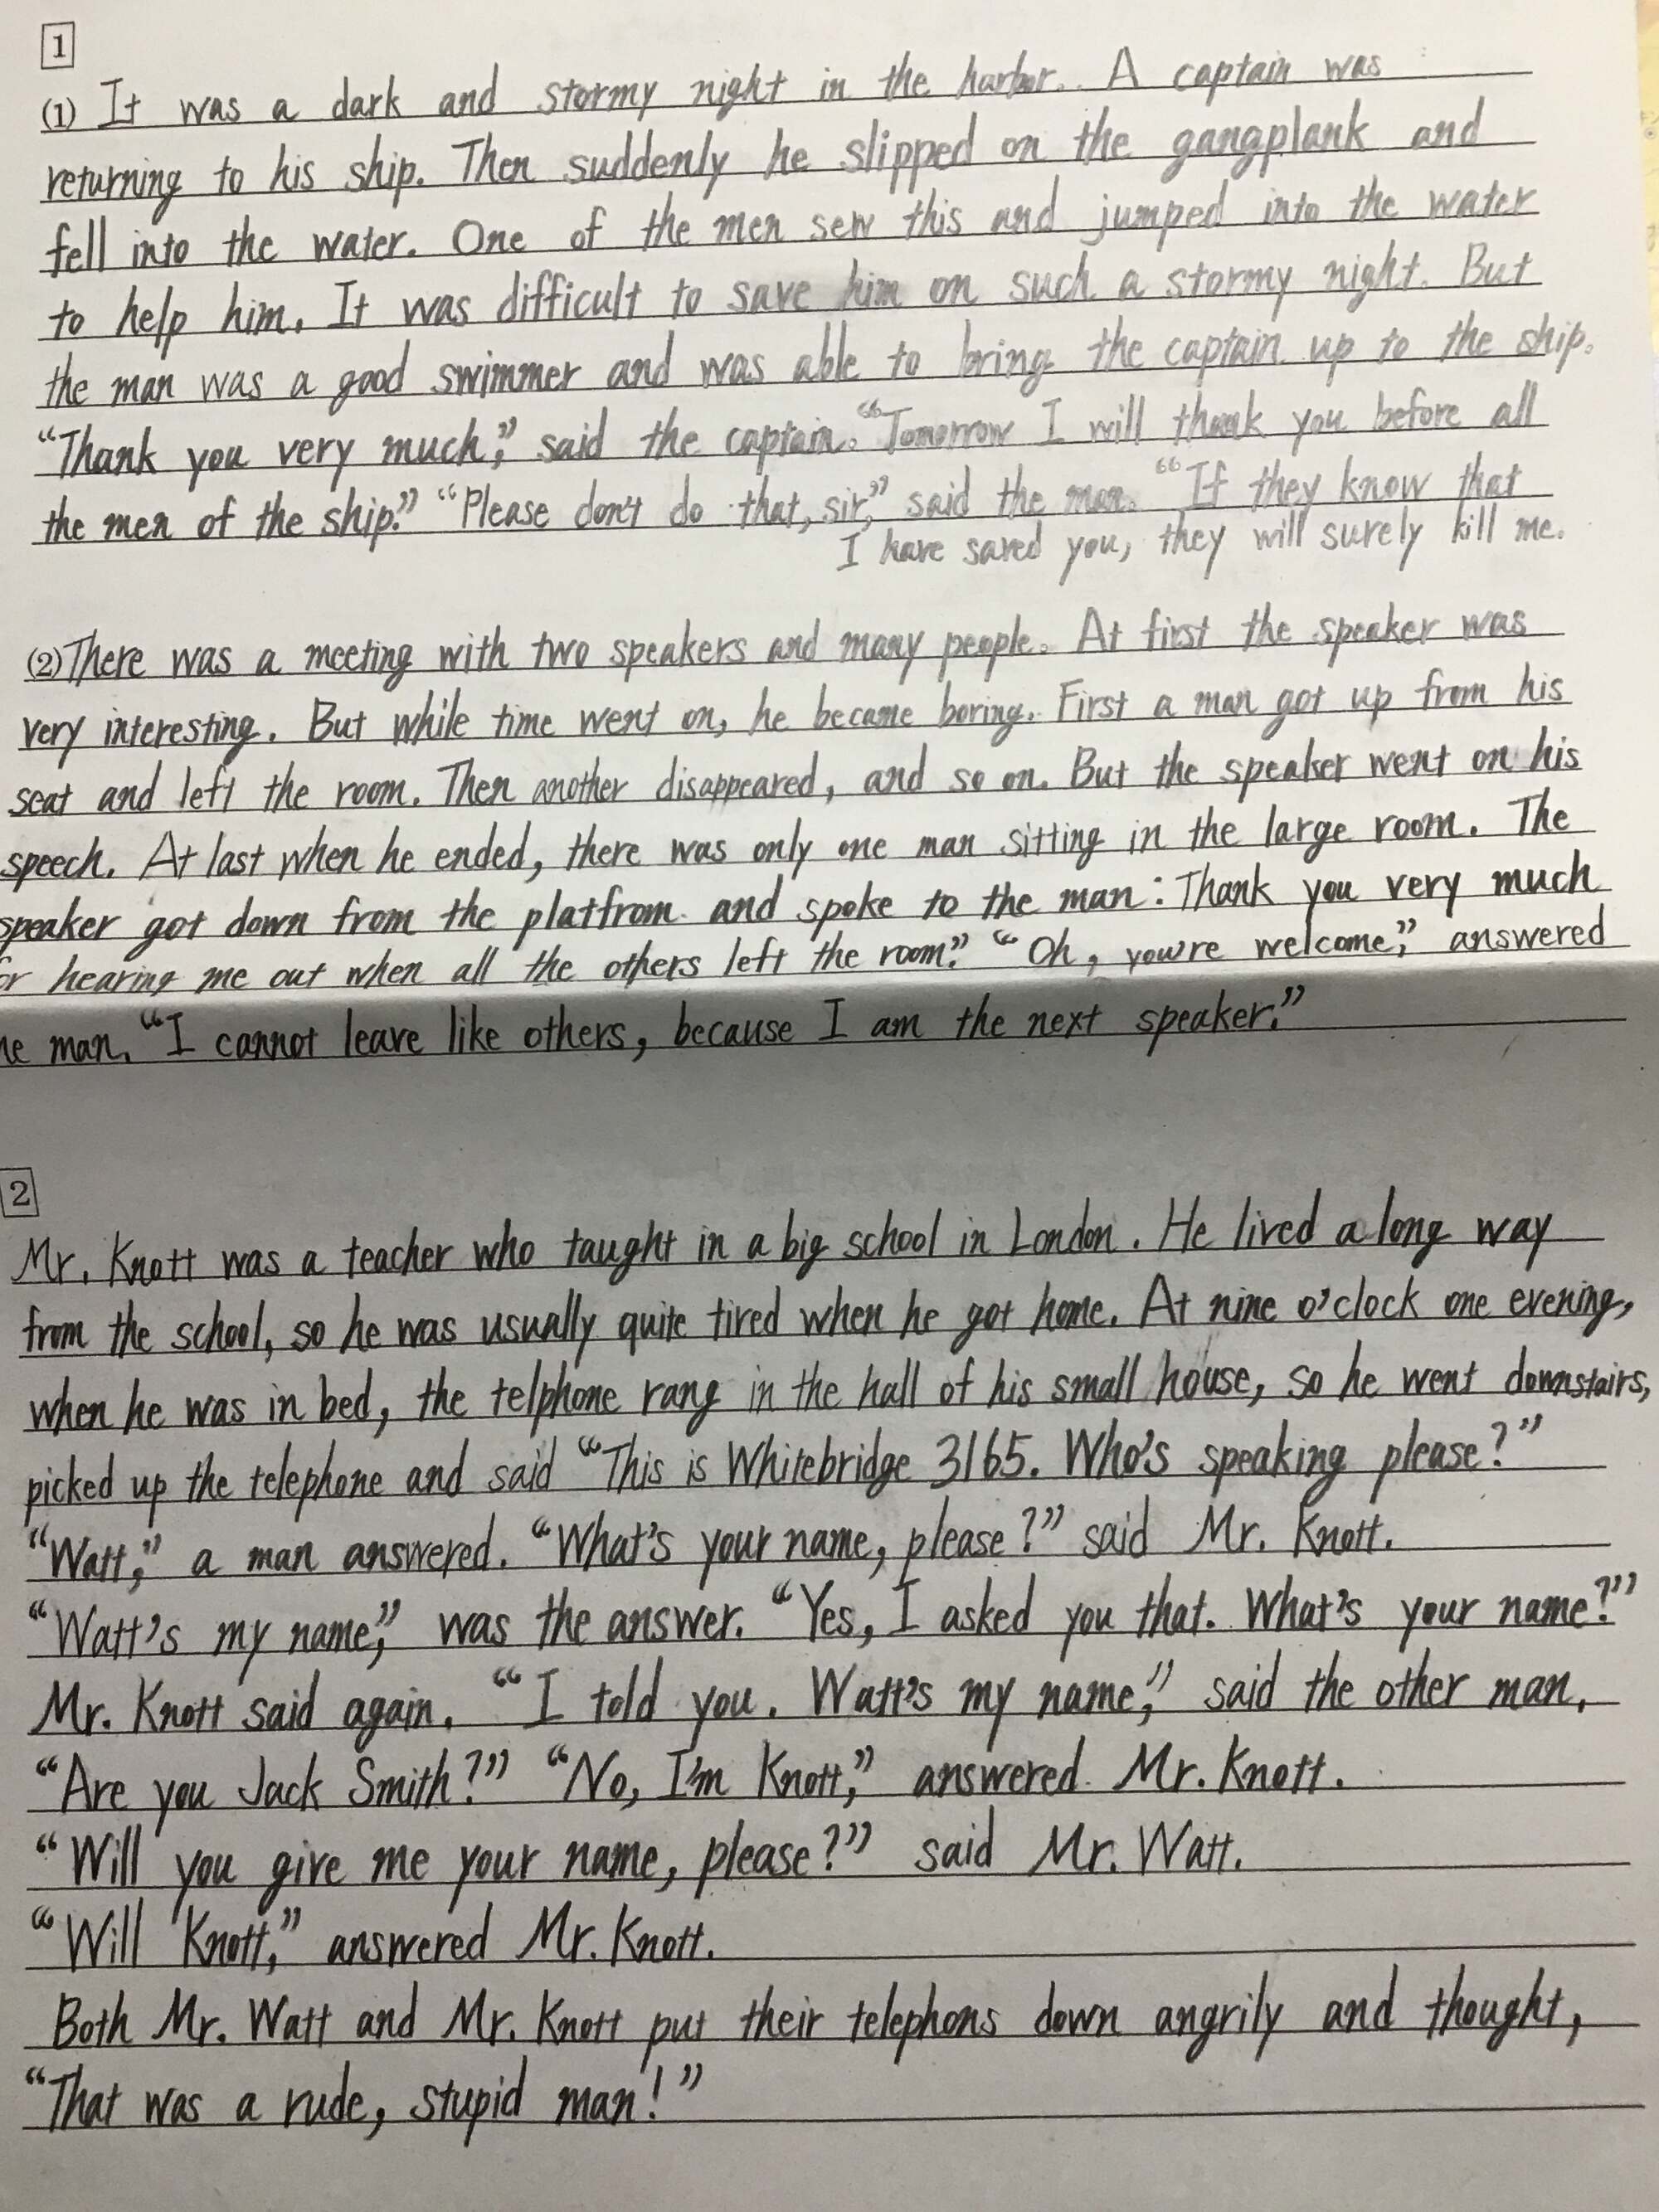 1
(1) It was a dark and stormy night in the harbor. A captain was
returning to his ship. Then suddenly he slipped on the gangplank and
fell into the water. One of the men sew this and jumped into the water
to help him. It was difficult to save him on such a stormy night. But
the man was a good swimmer and was able to bring the captain up to the ship.
“Thank you very much,” said the captain. “Tomorrow I will thank you before all
the men of the ship.” “Please don't do that, sir,” said the man. “If they know that
I have saved you, they will surely kill me.
(2) There was a meeting with two speakers and many people. At first the speaker was
very interesting. But while time went on, he became boring. First a man got up from his
seat and left the room. Then another disappeared, and so on. But the speaker went on his
speech. At last when he ended, there was only one man sitting in the large room. The
speaker got down from the platfrom and spoke to the man: Thank you very much
or hearing me out when all the others left the room.” “Oh, you're welcome,” answered
he man. “I cannot leave like others, because I am the next speaker.”
2
Mr. Knott was a teacher who taught in a big school in London. He lived a long way
from the school, so he was usually quite tired when he got home. At nine o'clock one evening,
when he was in bed, the telphone rang in the hall of his small house, so he went downstairs,
picked up the telephone and said “This is Whitebridge 3165. Who's speaking please?”
“Watt,” a man answered. “What's your name, please?” said Mr. Knott.
“Watt's my name,” was the answer. “Yes, I asked you that. What's your name?”
Mr. Knott said again. “I told you. Watt's my name,” said the other man.
“Are you Jack Smith?” “No, I'm Knott,” answered Mr. Knott.
“Will you give me your name, please?” said Mr. Watt.
“Will Knott,” answered Mr. Knott.
Both Mr. Watt and Mr. Knott put their telephons down angrily and thought,
“That was a rude, stupid man!”